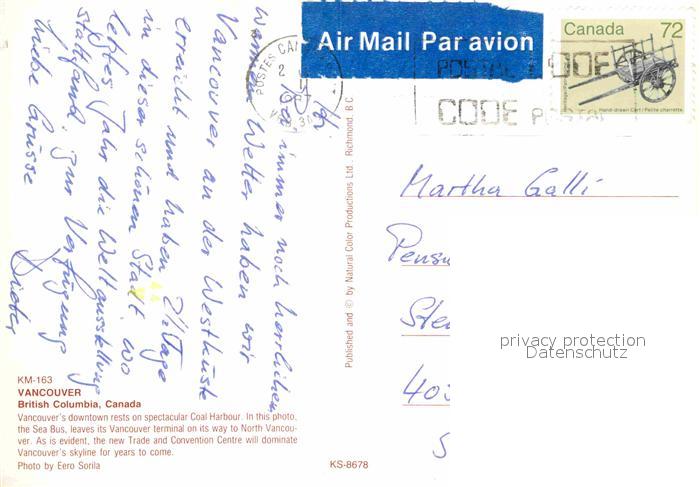 Air Mail Par avion
Canada 72
Hand-drawn Cart / Petite charrette
POSTES CAN
POSTAL CODE
CODE POSTAL
Bei immer noch herrlichem
warmen Wetter haben wir
Vancouver an der Westküste
erreicht und haben 2½ Tage
in dieser schönen Stadt, wo
letztes Jahr die Weltausstellung
stattfand, zur Verfügung
Liebe Grüsse
Dieter
Martha Galli
Pens
Ste
40
S
privacy protection
Datenschutz
Published and © by Natural Color Productions Ltd. Richmond, B.C.
KM-163
VANCOUVER
British Columbia, Canada
Vancouver's downtown rests on spectacular Coal Harbour. In this photo,
the Sea Bus, leaves its Vancouver terminal on its way to North Vancou-
ver. As is evident, the new Trade and Convention Centre will dominate
Vancouver's skyline for years to come.
Photo by Eero Sorila
KS-8678